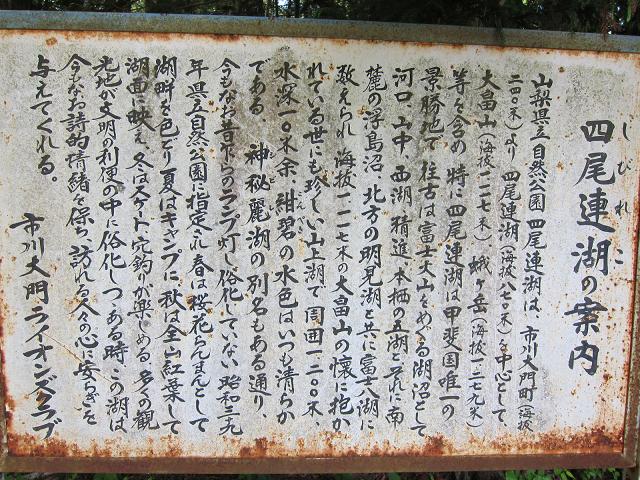 四尾連湖の案内
しびれこ
山梨県立自然公園 四尾連湖は、市川大門町(海抜
二四〇米)より 四尾連湖(海抜八七〇米)を中心として、
大畠山(海抜一一一七米) 蛾ヶ岳(海抜一二七九米)
等を含め 特に四尾連湖は甲斐国唯一の
景勝地で 往古は富士火山をめぐる湖沼として
河口、山中、西湖、精進、本栖の五湖とそれに南
麓の浮島沼、北方の明見湖と共に富士八湖に
数えられ 海抜一一一七米の大畠山の懐に抱か
れている世にも珍しい山上湖で 周囲一二〇〇米、
水深一〇米余、紺碧の水色はいつも清らか
こんぺき
である 神秘麗湖の別名もある通り、
今もなお昔乍らのランプ灯し俗化していない 昭和三九
年県立自然公園に指定され 春は桜花らんまんとして
湖畔を色どり 夏はキャンプに、秋は全山紅葉して
湖面に映え、冬はスケート、穴釣りが楽しめる、多くの観
光地が文明の利便の中に俗化しつゝある時 この湖は
今もなお詩的情緒を保ち、訪れる人々の心に安らぎを
与えてくれる。
市川大門ライオンズクラブ